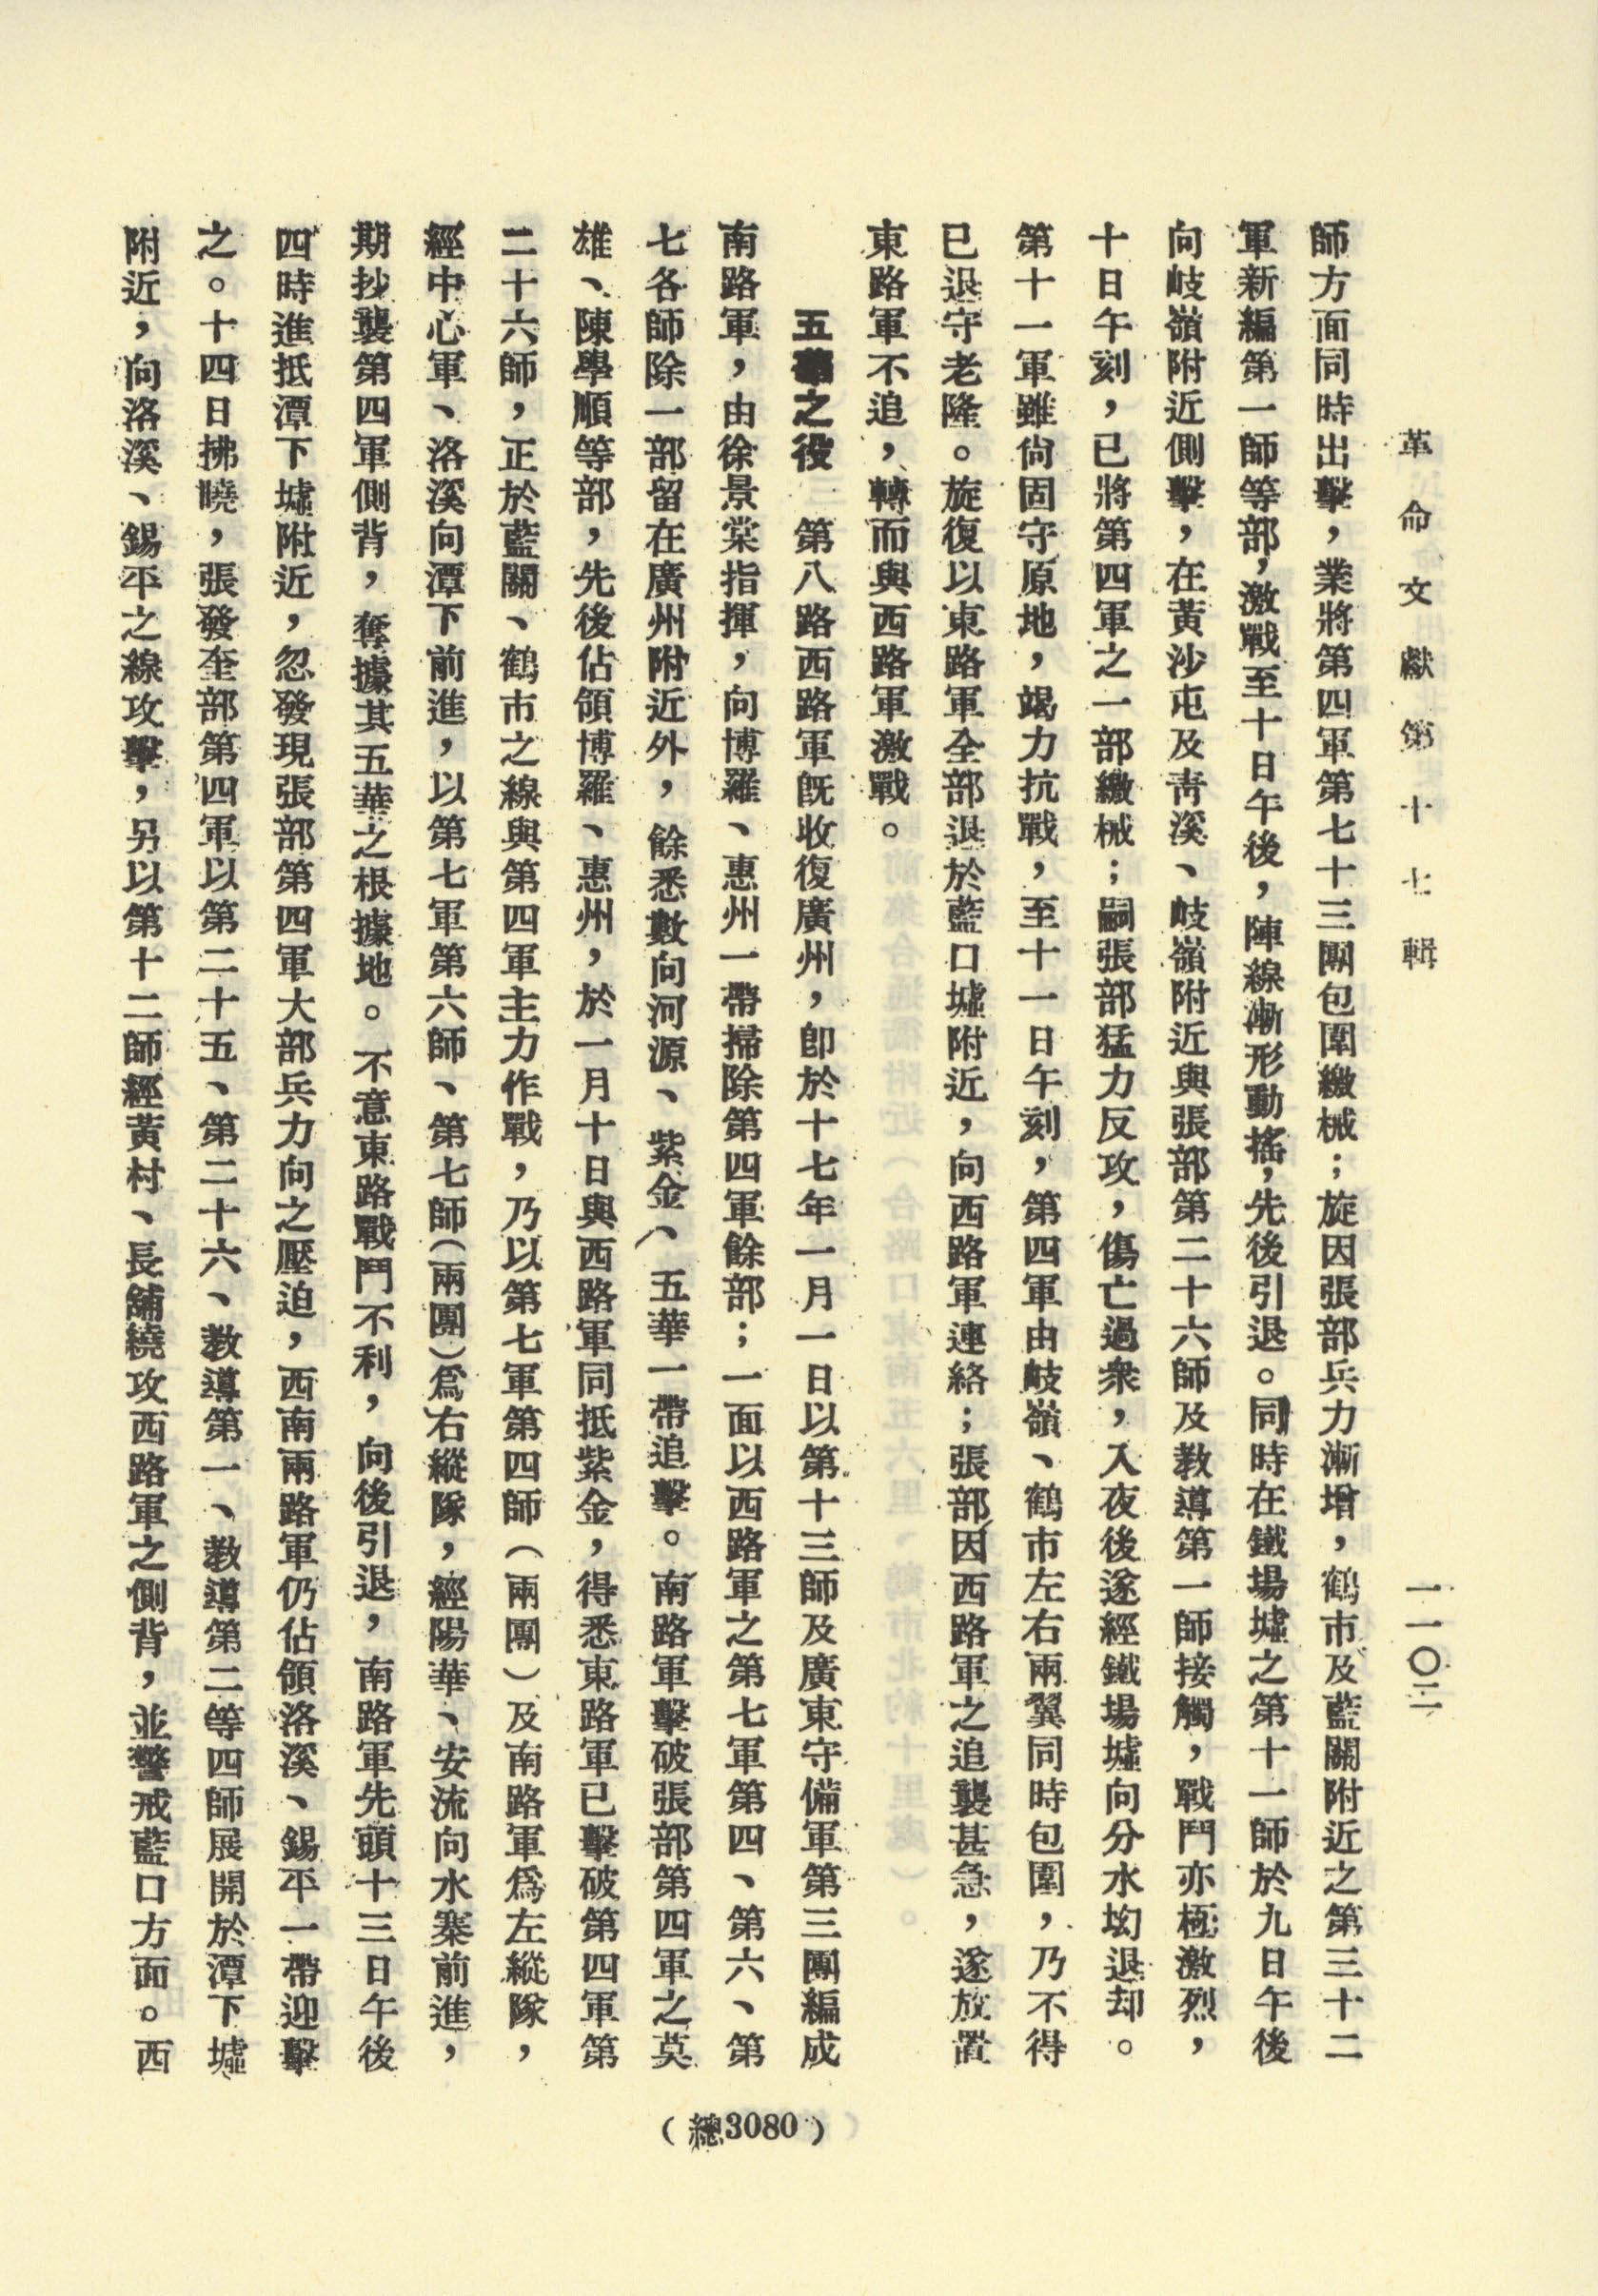 革命文獻第十七輯
一一〇二
師方面同時出擊，業將第四軍第七十三團包圍繳械；旋因張部兵力漸增，鶴市及藍關附近之第三十二
軍新編第一師等部，激戰至十日午後，陣線漸形動搖，先後引退。同時在鐵場墟之第十一師於九日午後
向岐嶺附近側擊，在黃沙屯及青溪、岐嶺附近與張部第二十六師及教導第一師接觸，戰鬥亦極激烈，
十日午刻，已將第四軍之一部繳械；嗣張部猛力反攻，傷亡過衆，入夜後遂經鐵場墟向分水坳退却。
第十一軍雖尙固守原地，竭力抗戰，至十一日午刻，第四軍由岐嶺、鶴市左右兩翼同時包圍，乃不得
已退守老隆。旋復以東路軍全部退於藍口墟附近，向西路軍連絡；張部因西路軍之追襲甚急，遂放置
東路軍不追，轉而與西路軍激戰。
五華之役　第八路西路軍旣收復廣州，卽於十七年一月一日以第十三師及廣東守備軍第三團編成
南路軍，由徐景棠指揮，向博羅、惠州一帶掃除第四軍餘部；一面以西路軍之第七軍第四、第六、第
七各師除一部留在廣州附近外，餘悉數向河源、紫金、五華一帶追擊。南路軍擊破張部第四軍之莫
雄、陳學順等部，先後佔領博羅、惠州，於一月十日與西路軍同抵紫金，得悉東路軍已擊破第四軍第
二十六師，正於藍關、鶴市之線與第四軍主力作戰，乃以第七軍第四師（兩團）及南路軍爲左縱隊，
經中心軍、洛溪向潭下前進，以第七軍第六師、第七師（兩團）爲右縱隊，經陽華、安流向水寨前進，
期抄襲第四軍側背，奪據其五華之根據地。不意東路戰鬥不利，向後引退，南路軍先頭十三日午後
四時進抵潭下墟附近，忽發現張部第四軍大部兵力向之壓迫，西南兩路軍仍佔領洛溪、錫平一帶迎擊
之。十四日拂曉，張發奎部第四軍以第二十五、第二十六、教導第一、教導第二等四師展開於潭下墟
附近，向洛溪、錫平之線攻擊，另以第十二師經黃村、長舖繞攻西路軍之側背，並警戒藍口方面。西
（總3080）